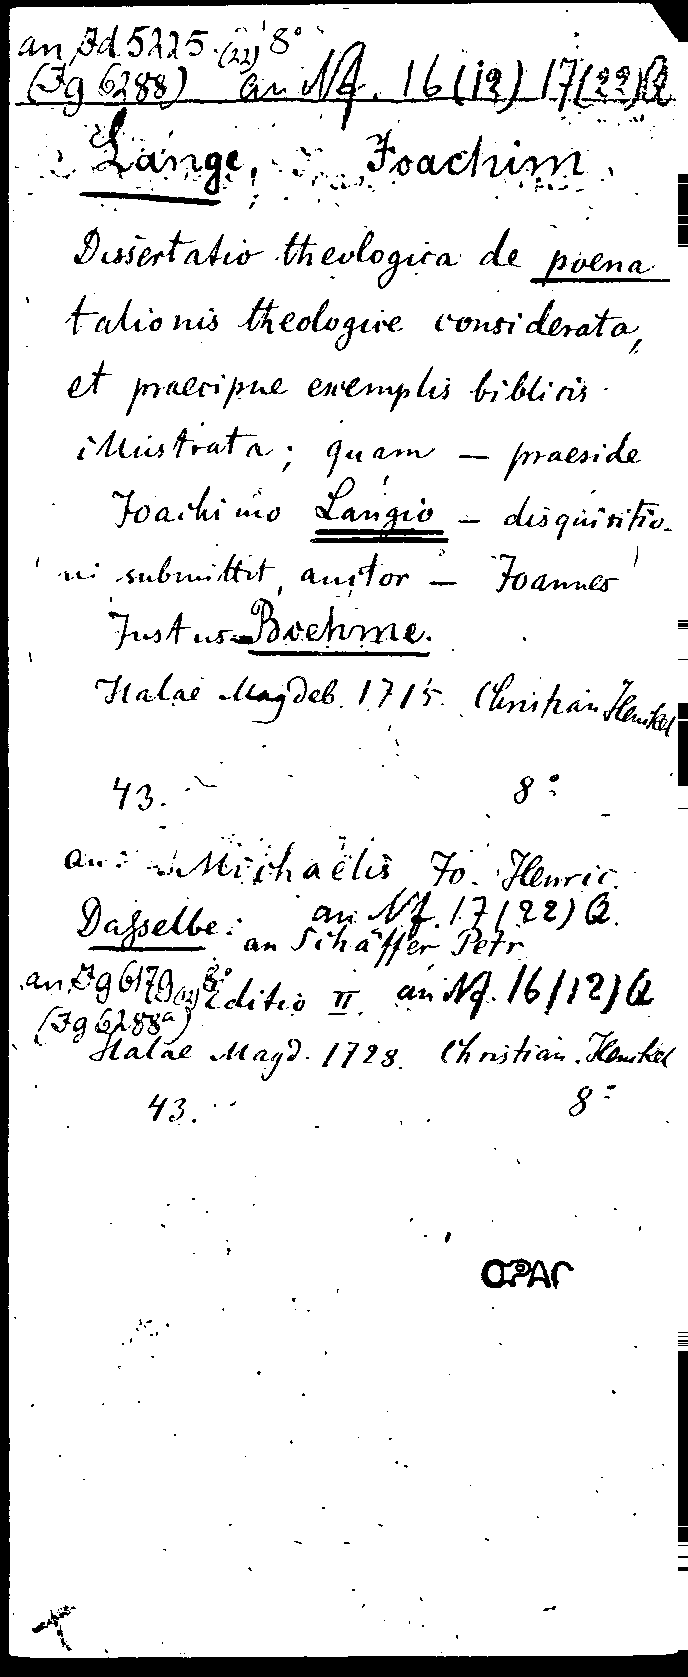 an Jd 5225 (22) 8°
(Jg 6288) an Nf. 16 (12) 17 (22) Q
Lange, Joachim.
Dissertatio theologica de poena
talionis theologice considerata,
et praecipue exemplis biblicis
illustrata; quam — praeside
Joachimo Langio — disquisitio-
ni submittit, auctor — Joannes
Justus Boehme.
Halae Magdeb. 1715. Christian Henckel
43. 8°
an: Michaëlis Jo. Henric.
Dasselbe: an Nf. 17 (22) Q.
an Schäffer Petr
an Jg 6179 (12) 8° Editio II. an Nf. 16 (12) Q
(Jg 6288a)
Halae Magd. 1728. Christian Henckel
43. 8°
OPAC